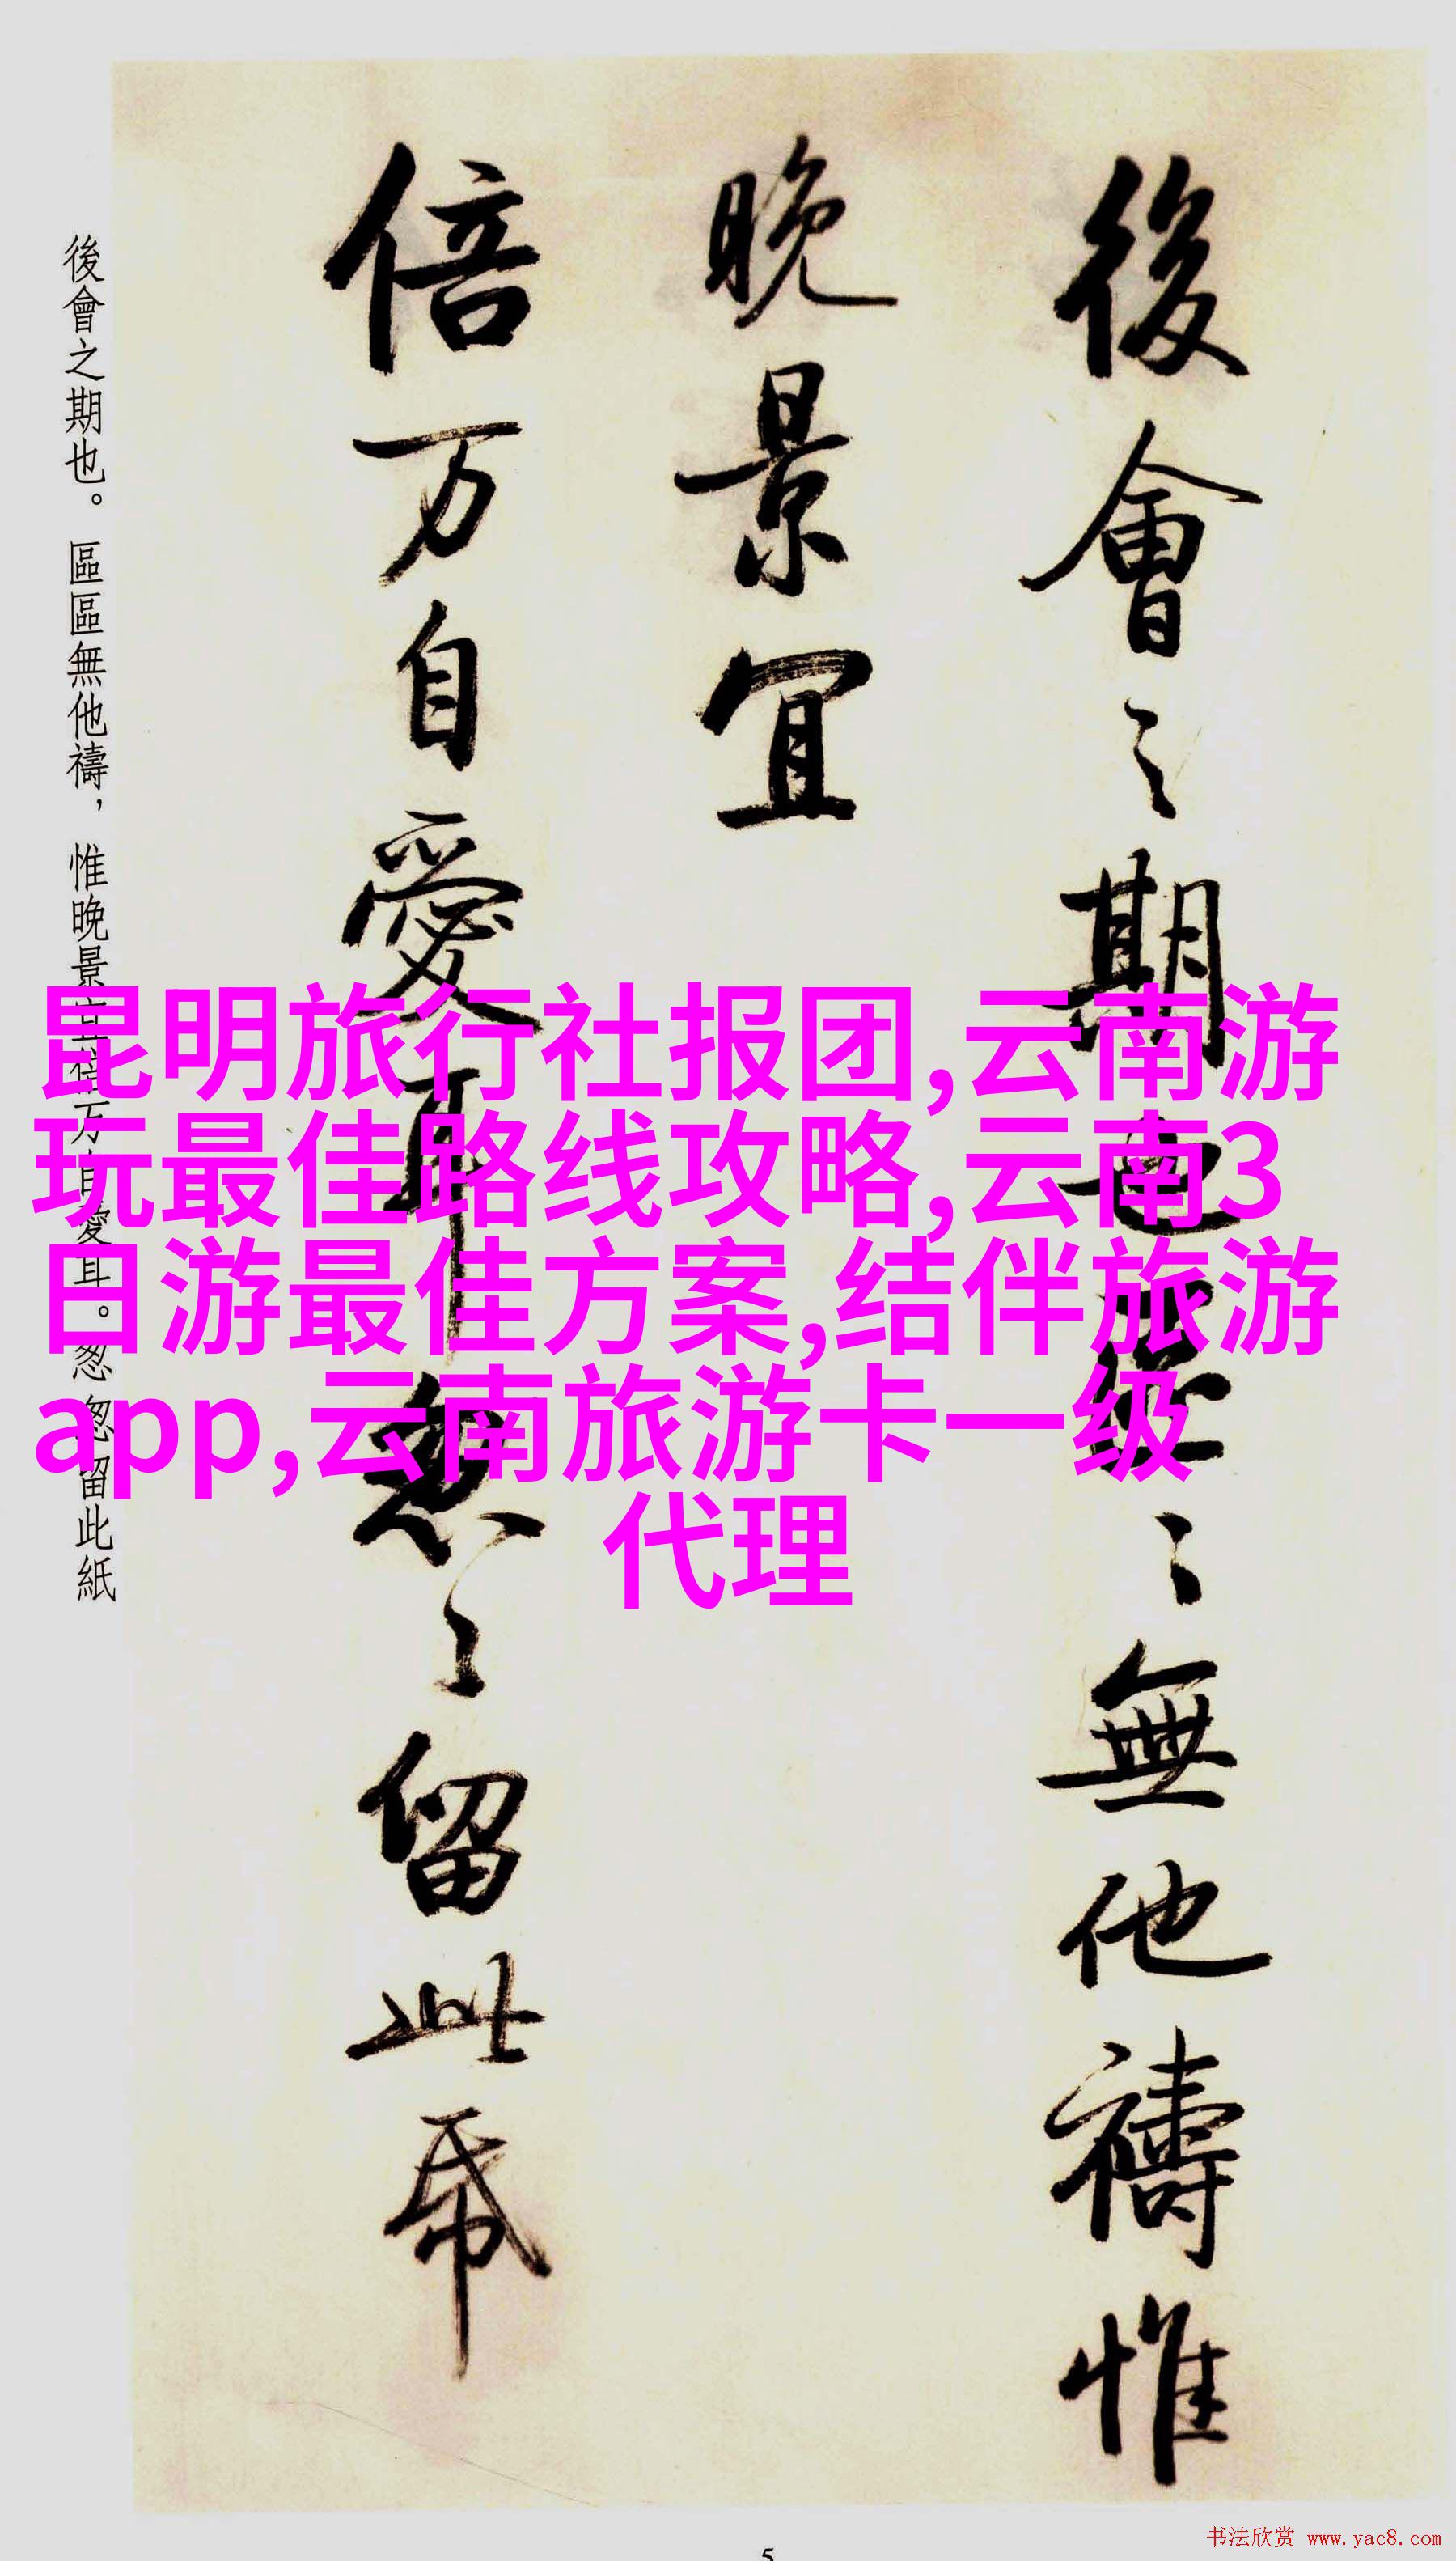 後會之期也。區區無他禱，惟晚景宜倍万自愛耳。怱怱留此紙
後會之期也區〻無他禱惟
晚景宜
倍万自愛耳怱〻留此紙
昆明旅行社报团,云南游
玩最佳路线攻略,云南3
日游最佳方案,结伴旅游
app,云南旅游卡一级
代理
书法欣赏 www.yac8.com
5